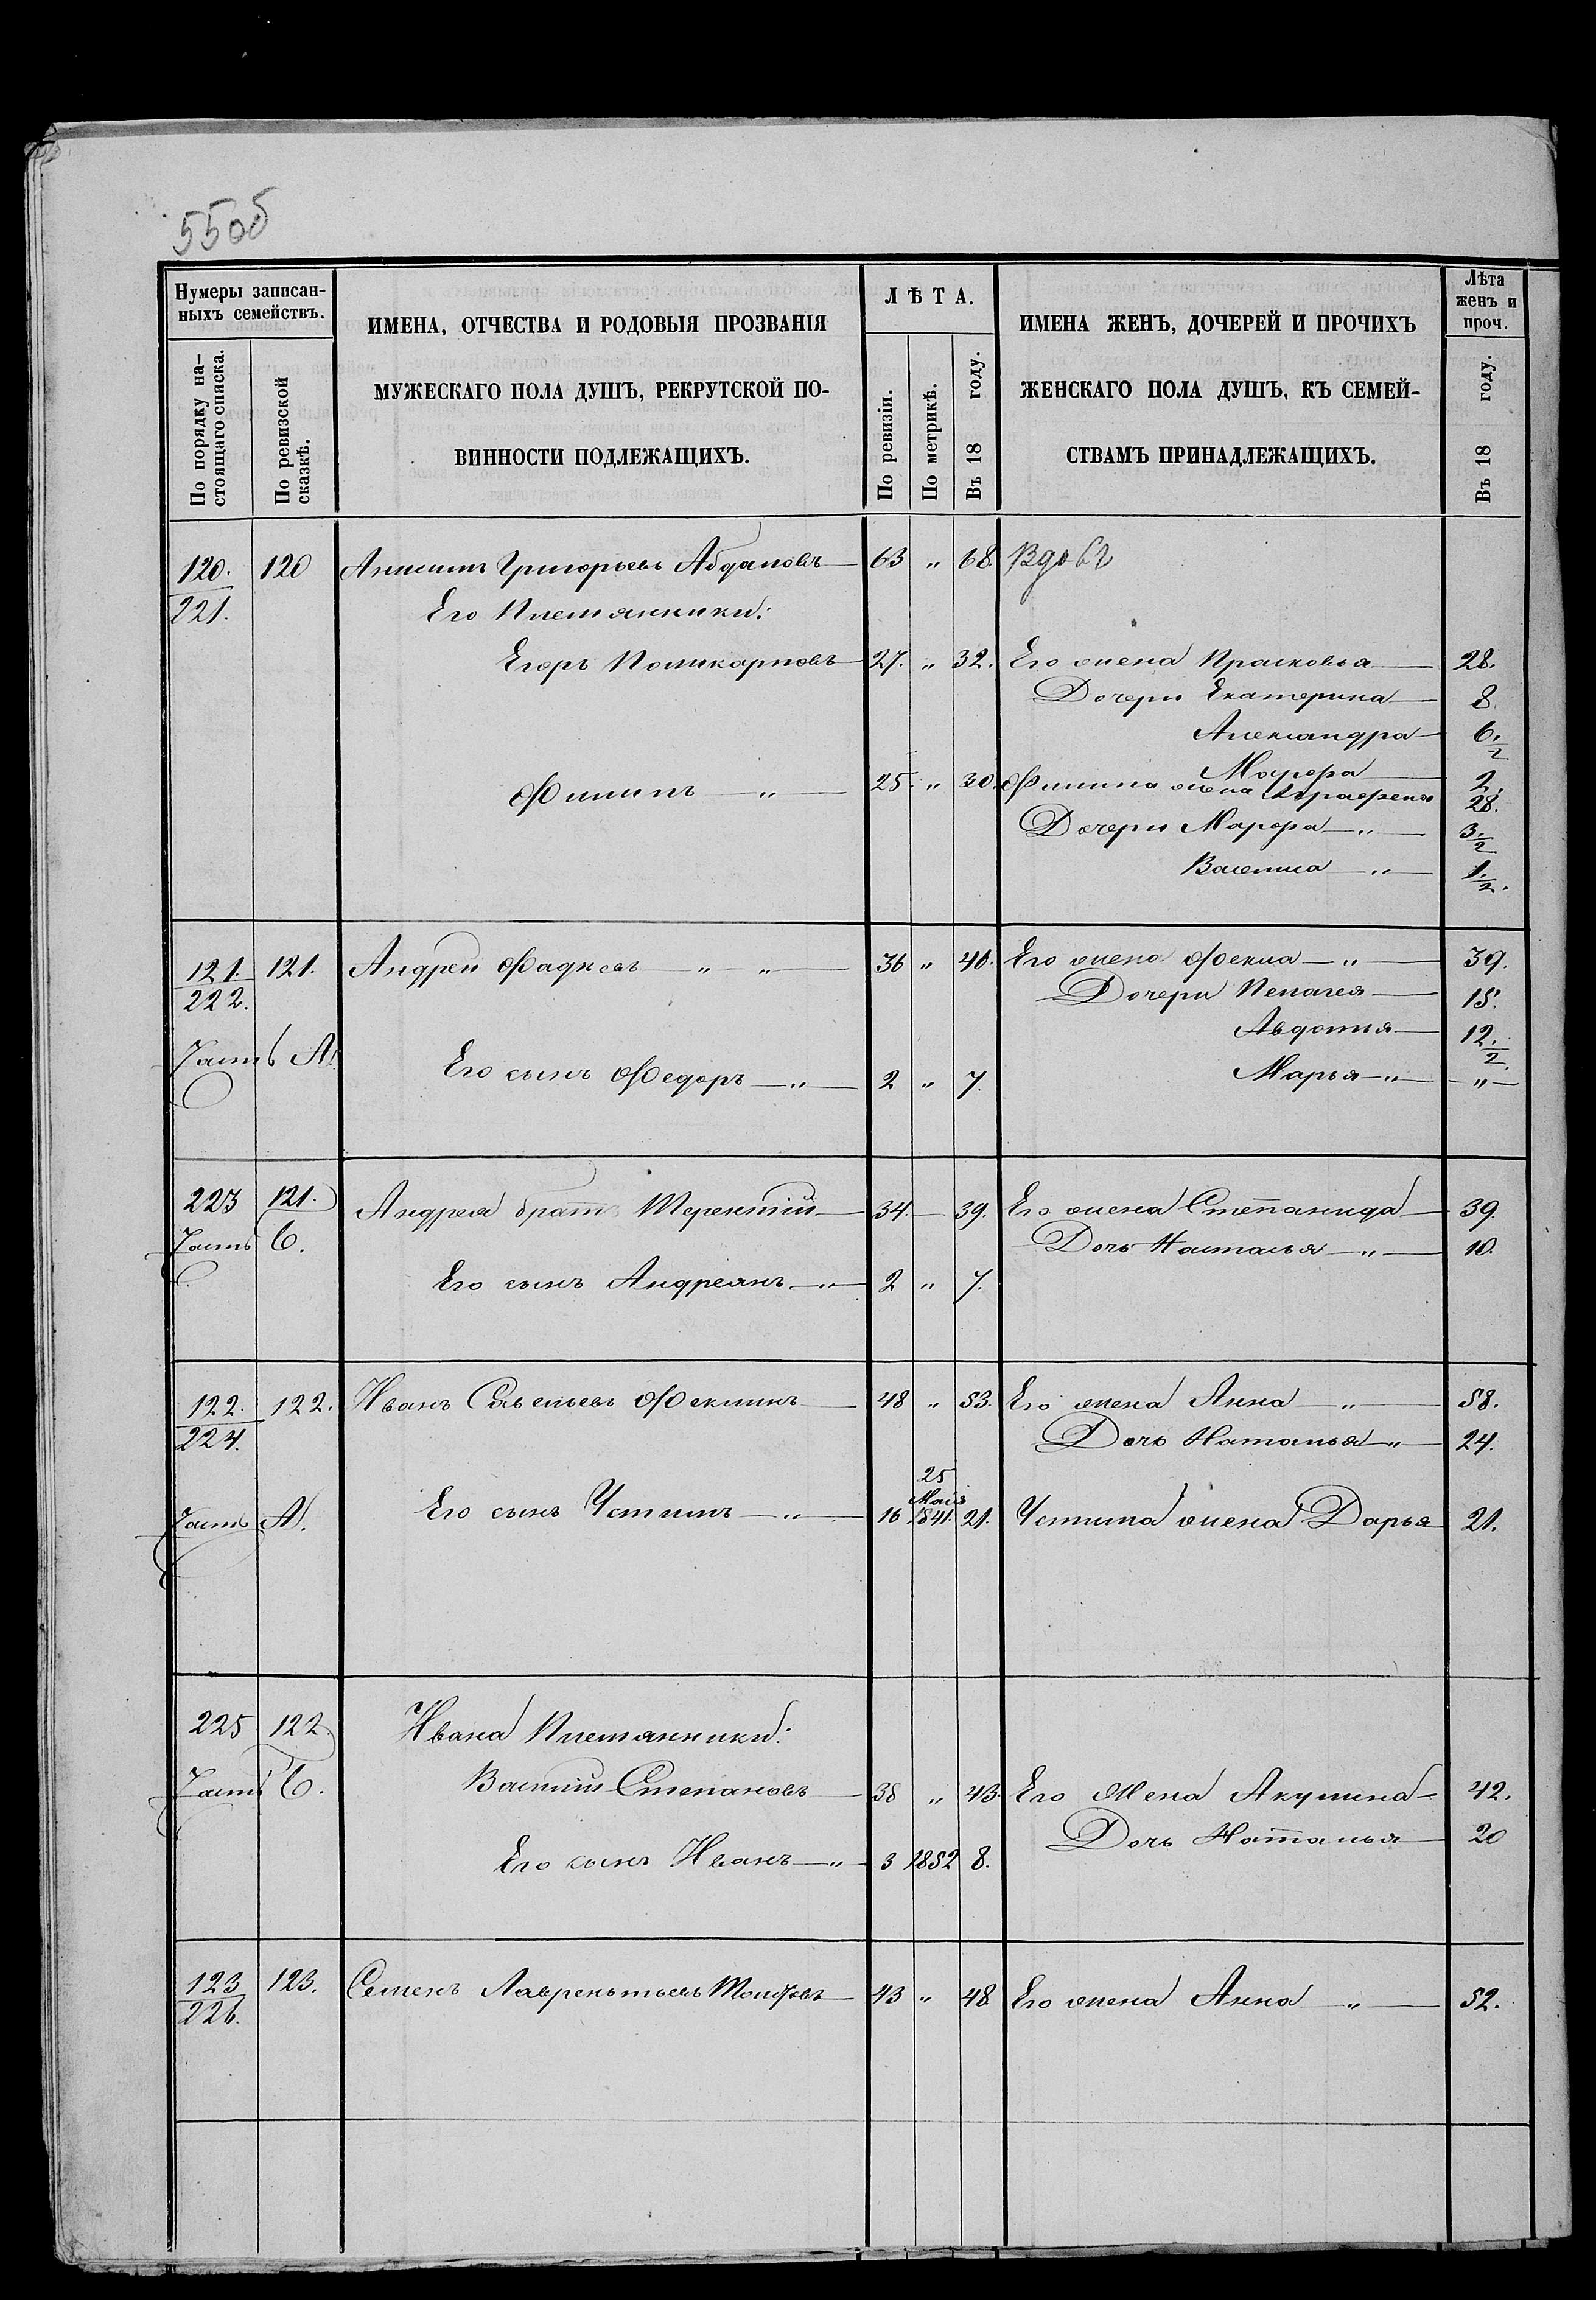 55об
Нумеры записан-
ныхъ семействъ.
По порядку на-
стоящаго списка.
По ревизской
сказкѣ.
ИМЕНА, ОТЧЕСТВА И РОДОВЫЯ ПРОЗВАНІЯ
МУЖЕСКАГО ПОЛА ДУШЪ, РЕКРУТСКОЙ ПО-
ВИННОСТИ ПОДЛЕЖАЩИХЪ.
ЛѢТА.
По ревизіи.
По метрикѣ.
Въ 18 году.
ИМЕНА ЖЕНЪ, ДОЧЕРЕЙ И ПРОЧИХЪ
ЖЕНСКАГО ПОЛА ДУШЪ, КЪ СЕМЕЙ-
СТВАМЪ ПРИНАДЛЕЖАЩИХЪ.
Лѣта
женъ и
проч.
Въ 18 году.
120. 120 Анисимъ Григорьевъ Абдаловъ 63 „ 68. Вдовъ
221. Его Племянники:
Егоръ Поликарповъ 27. „ 32. Его жена Прасковья 28.
Дочери Екатерина 8.
Александра 6 1/2
Марфа 2.
Филипъ „ 25. „ 30. Филипа жена Аграфена 28.
Дочери Марфа „ 3 1/2
Василиса „ 1 1/2.
121. 121. Андрей Фадѣевъ „ „ 36 „ 41. Его жена Фекла „ 39.
222. Дочери Пелагея 15.
Авдотья 12 1/2
Часть А.
Его сынъ Федоръ „ 2 „ 7. Марья „ „
223 121. Андрея братъ Терентій 34. 39. Его жена Степанида 39.
Часть Б. Дочь Наталья „ 10.
Его сынъ Андреянъ „ 2 „ 7.
122. 122. Иванъ Савельевъ Феклинъ 48 „ 53. Его жена Анна „ 58.
224. Дочь Наталья „ 24.
25
Мая
Часть А. Его сынъ Устинъ „ 16 1841. 21. Устина жена Дарья 21.
225 122. Ивана Племянники:
Часть Б. Василій Степановъ 38 „ 43. Его Жена Акулина 42.
Дочь Наталья 20
Его сынъ Иванъ „ 3 1852 8.
123 123. Семенъ Лаврентьевъ 43 „ 48 Его жена Анна „ 52.
226.